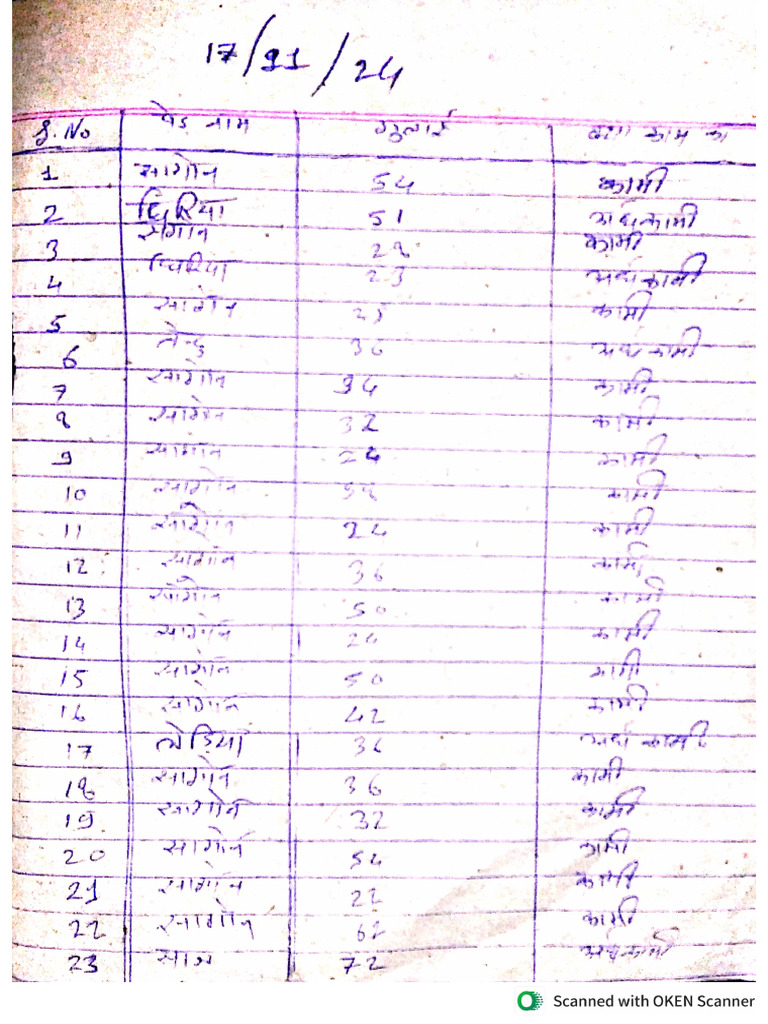 17/11/24
S.No पेड नाम गुलाई
1 सागोन 54 कामी
2 घिरिया 51 अर्धकामी
3 सागोन 28 कामी
4 घिरिया 23 अर्धकामी
5 सागोन कामी
6 तेन्दु 36 अर्धकामी
7 सागोन 34 कामी
8 सागोन 32 कामी
9 सागोन 24 कामी
10 सागोन कामी
11 सागोन 24 कामी
12 सागोन 36 कामी
13 सागोन 50 कामी
14 सागोन 24 कामी
15 सागोन 50 कामी
16 सागोन 42 कामी
17 लेडिया 36 अर्धकामी
18 सागोन 36 कामी
19 सागोन 32 कामी
20 सागोन 54 कामी
21 सागोन 22 कामी
22 सागोन 62 कामी
23 साज 72 अर्धकामी
Scanned with OKEN Scanner